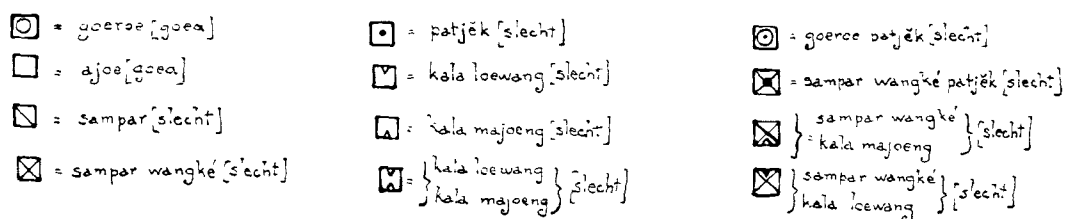 = goeroe [goed]
= ajoe [goed]
= sampar [slecht]
= sampar wangké [slecht]
= patjĕk [slecht]
= kala loewang [slecht]
= kala majoeng [slecht]
= kala loewang
kala majoeng [slecht]
= goeroe patjĕk [slecht]
= sampar wangké patjĕk [slecht]
= sampar wangké
kala majoeng [slecht]
sampar wangké
kala loewang [slecht]